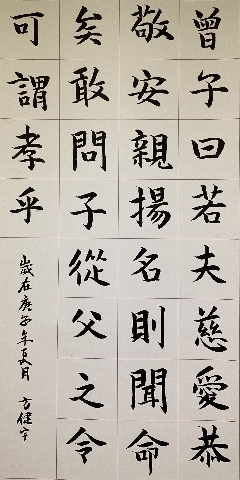 曾子曰若夫慈愛恭
敬安親揚名則聞命
矣敢問子從父之令
可謂孝乎
歲在庚子年夏月 方健宇